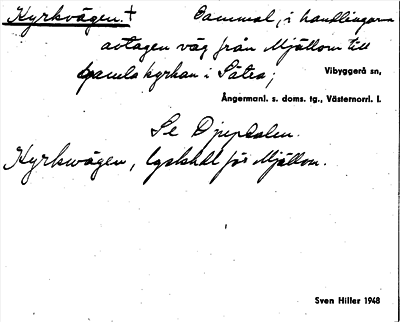 Kyrkvägen.† Gammal, i handlingarna
avtagen väg från Mjällom till
gamla kyrkan i Sätra;
Vibyggerå sn,
Ångermanl. s. doms. tg., Västernorrl. l.
Se Djupdalen.
Kyrkvägen, lyskäl för Mjällom.
Sven Hiller 1948